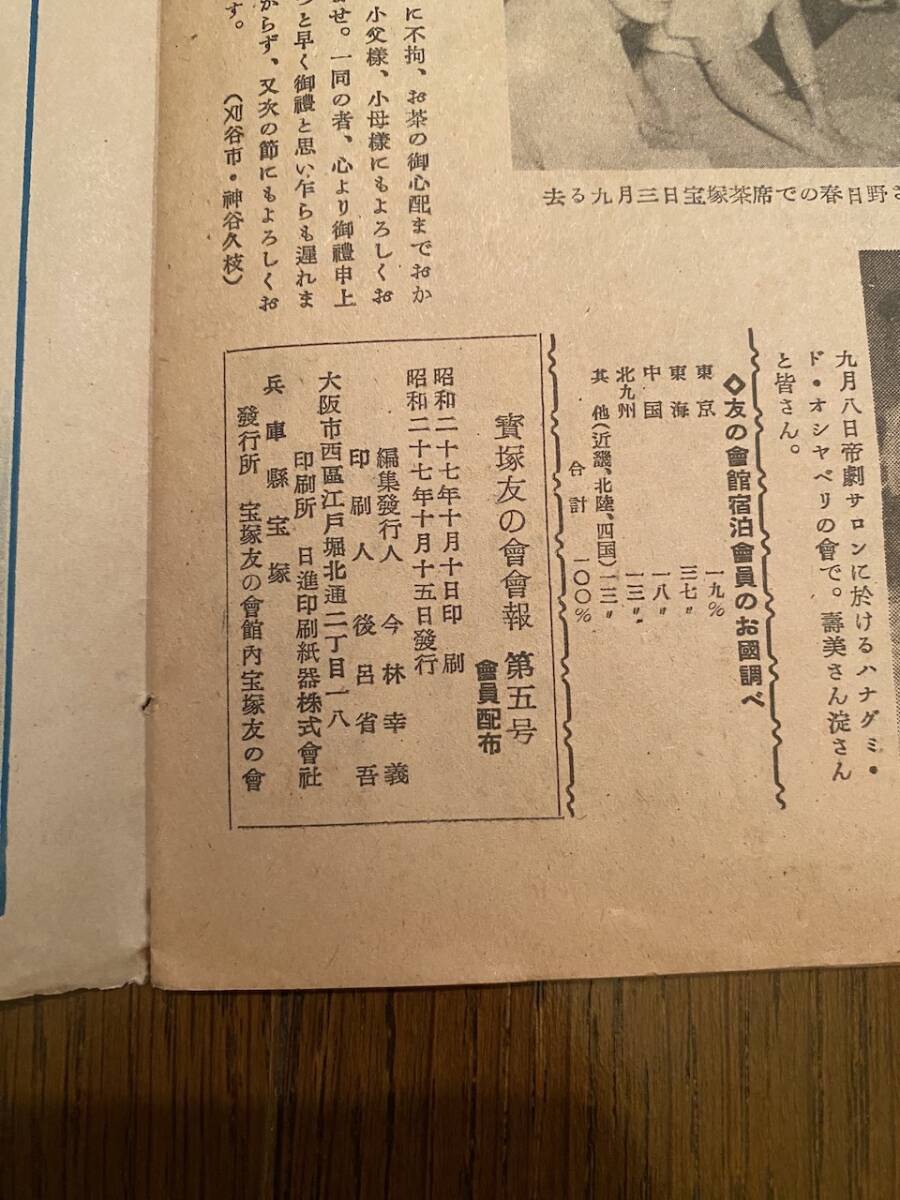 に不拘、お茶の御心配までおか
小父様、小母様にもよろしくお
ませ。一同の者、心より御禮申上
つと早く御禮と思い乍らも遲れま
からず、又次の節にもよろしくお
す。
(刈谷市・神谷久枝)
去る九月三日宝塚茶席での春日野さ
九月八日帝劇サロンに於けるハナグミ・
ド・オシャベリの會で。壽美さん淀さん
と皆さん。
◇友の會館宿泊會員のお國調べ
東京 一九%
東海 三七〃
中国 一八〃
北九州 一三〃
其他(近畿、北陸、四国) 一三〃
合計 一〇〇%
寳塚友の會會報 第五号
會員配布
昭和二十七年十月十日印刷
昭和二十七年十月十五日發行
編集發行人 今林幸義
印刷人 後呂省吾
大阪市西區江戸堀北通二丁目一八
印刷所 日進印刷紙器株式會社
兵庫縣宝塚
發行所 宝塚友の會館内宝塚友の會